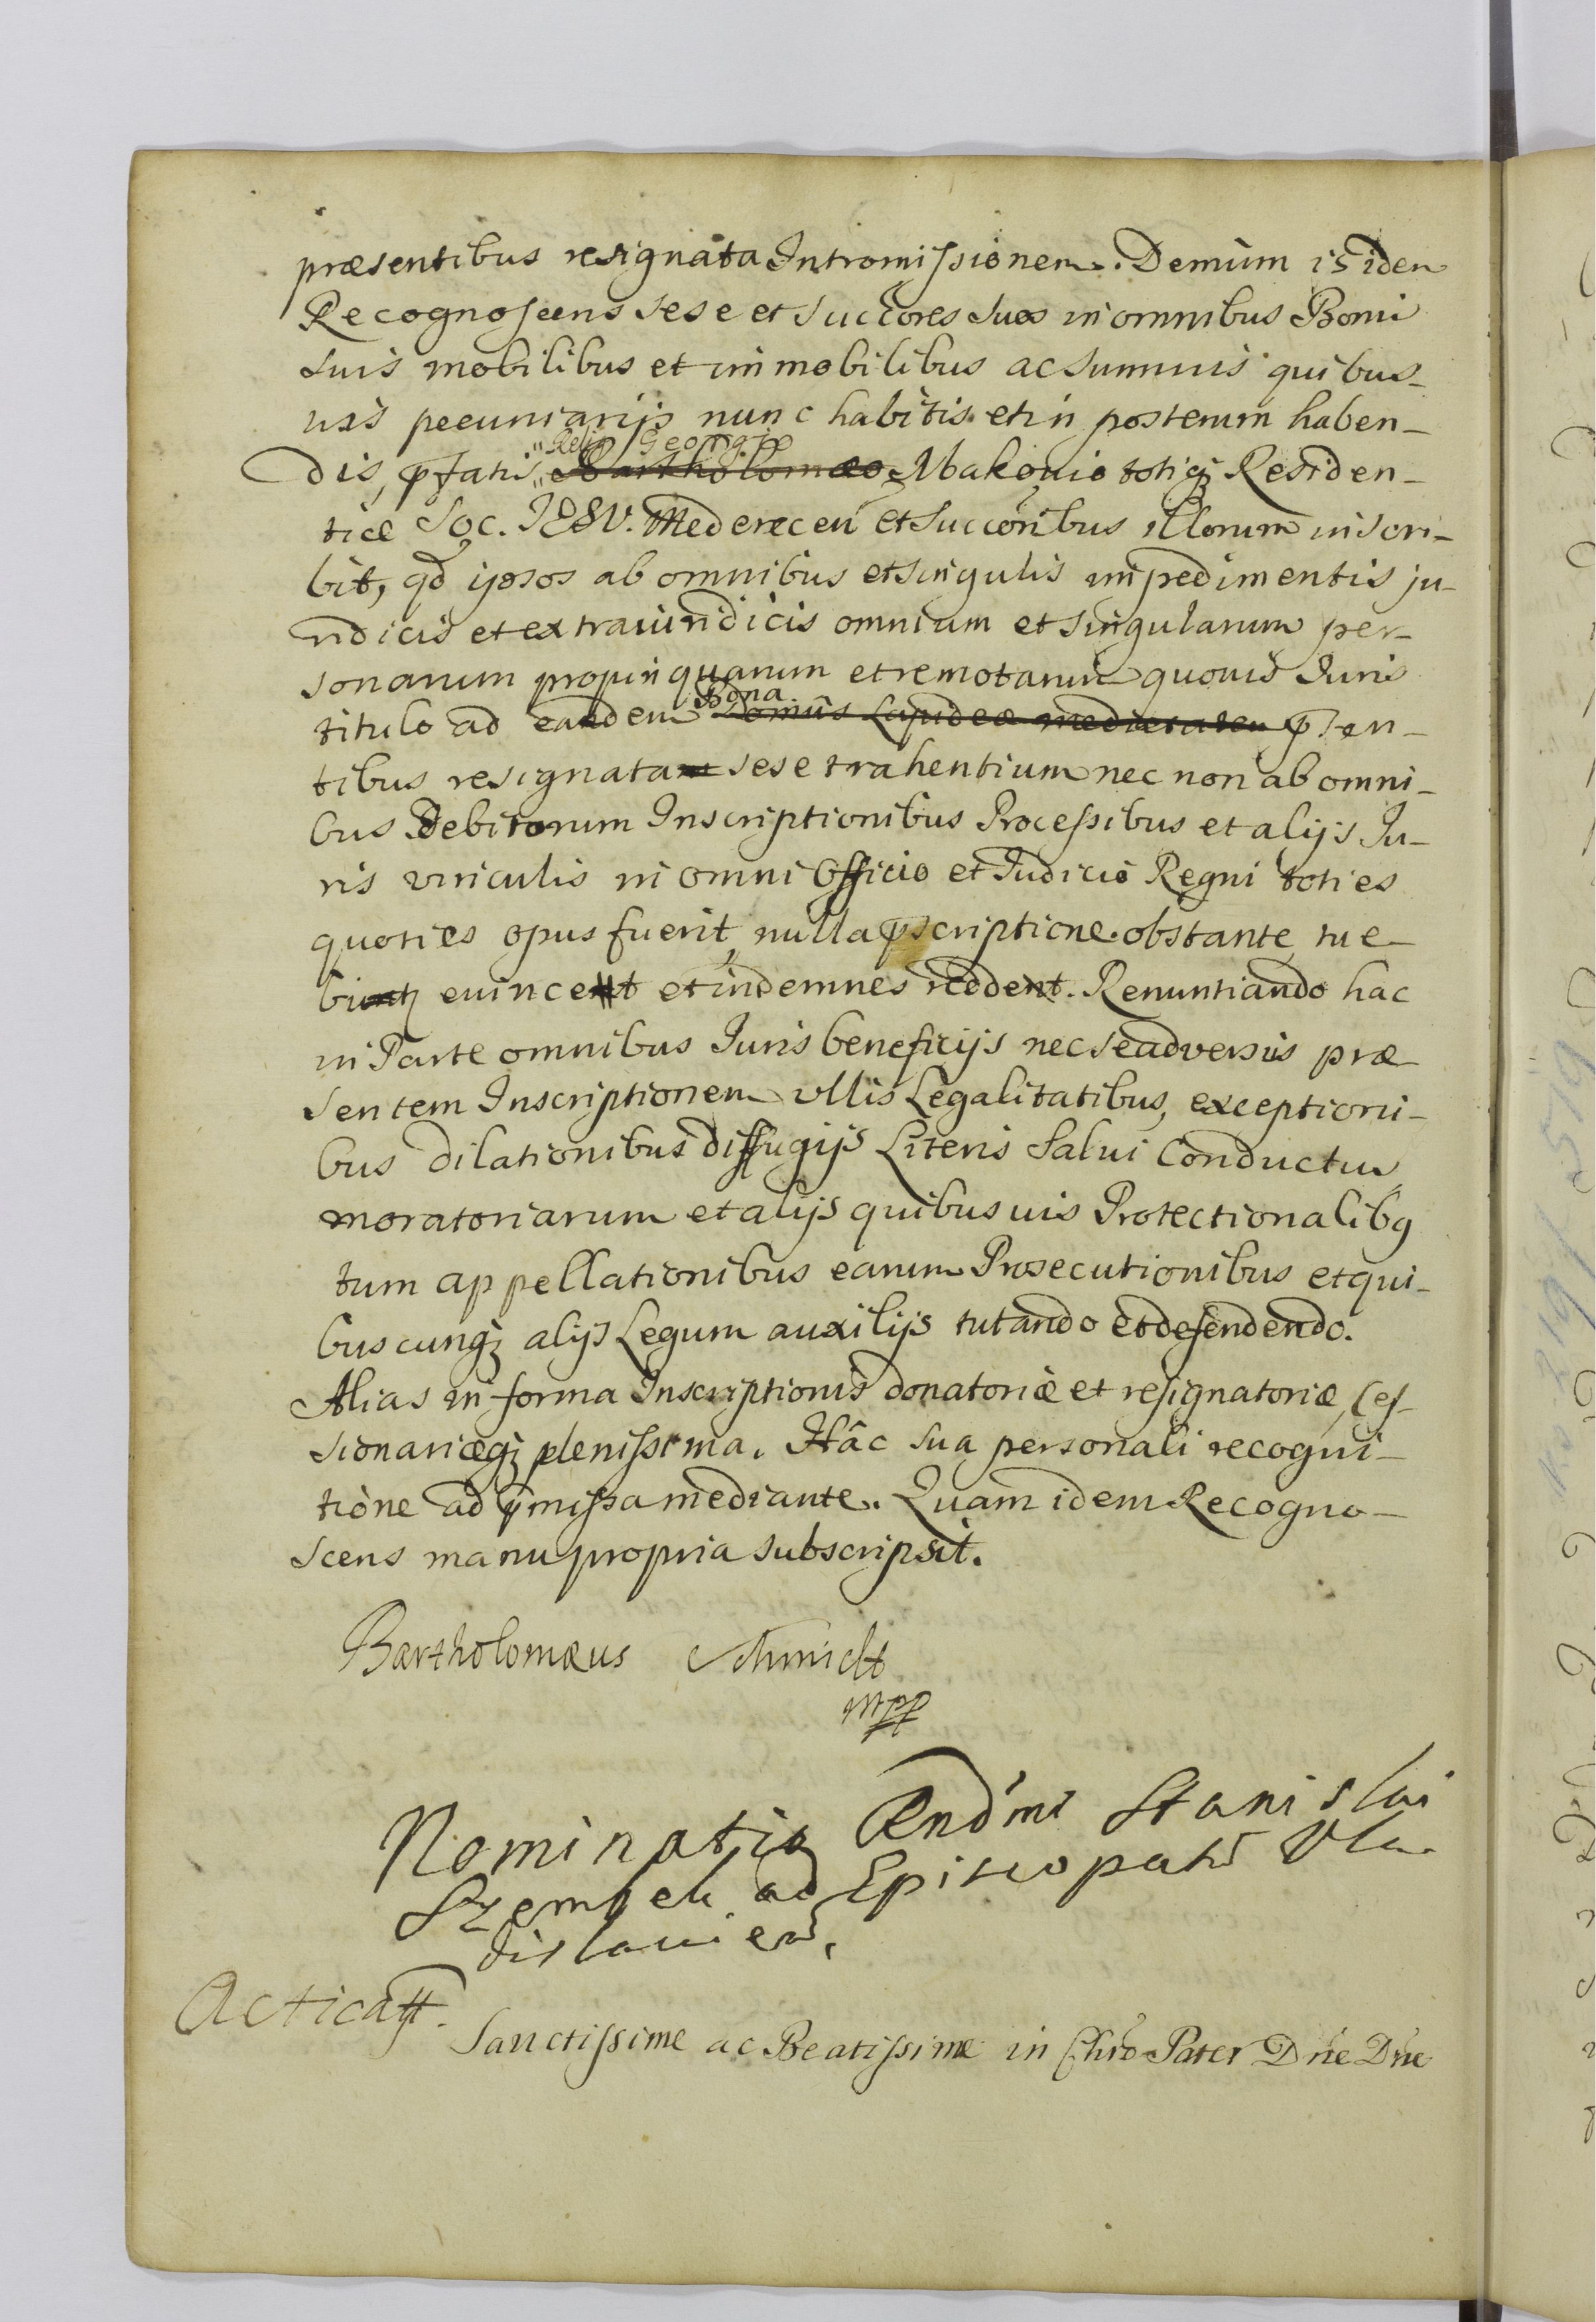 præsentibus resignata Intromissionem. Demum is idem
Recognoscens sese et Succores suos in omnibus Bonis
suis mobilibus et immobilibus ac summis quibus-
uis pecuniarijs nunc habitis et in posterum haben-
Relig Georgio
dis, pfatis Bartholomæo Makouio totiqz Residen-
tiæ Soc. IESV. Mederecen et Succoribus illorum inscri-
bit, qd ipsos ab omnibus et singulis impedimentis ju-
ridicis et extraiuridicis omnium et singularum per-
sonarum propinquarum et remotarum quouis Iuris
Bona
titulo ad eandem Domus Lapideæ medietatem psen-
tibus resignata sese trahentium nec non ab omni-
bus Debitorum Inscriptionibus Processibus et alijs Iu-
ris vinculis in omni Officio et Iudicio Regni toties
quoties opus fuerit, nulla pscriptione obstante, tue-
bitz euincet et indemnes reddet. Renuntiando hac
in Parte omnibus Iuris beneficijs nec se adversus præ
sentem Inscriptionem ullis Legalitatibus, exceptioni-
bus dilationibus diffugijs Literis Salui Conductus
moratoriarum et alijs quibusuis Protectionalibq
tum appellationibus earum Prosecutionibus et qui-
buscunqz alijs Legum auxilijs tutando et defendendo.
Alias in forma Inscriptionis donatoriæ et resignatoriæ, Ces-
sionariæqz plenissima. Hâc sua personali recogni-
tione ad pmissa mediante. Quam idem Recogno-
scens manu propria subscripsit.
Bartholomæus Schmidt
mpp
Nominatio Rndmi Stanislai
Szembek ad Episcopatu Vla-
dislauien,
Acticatt.
Sanctissime ac Beatissime in Chro Pater Dne Dne